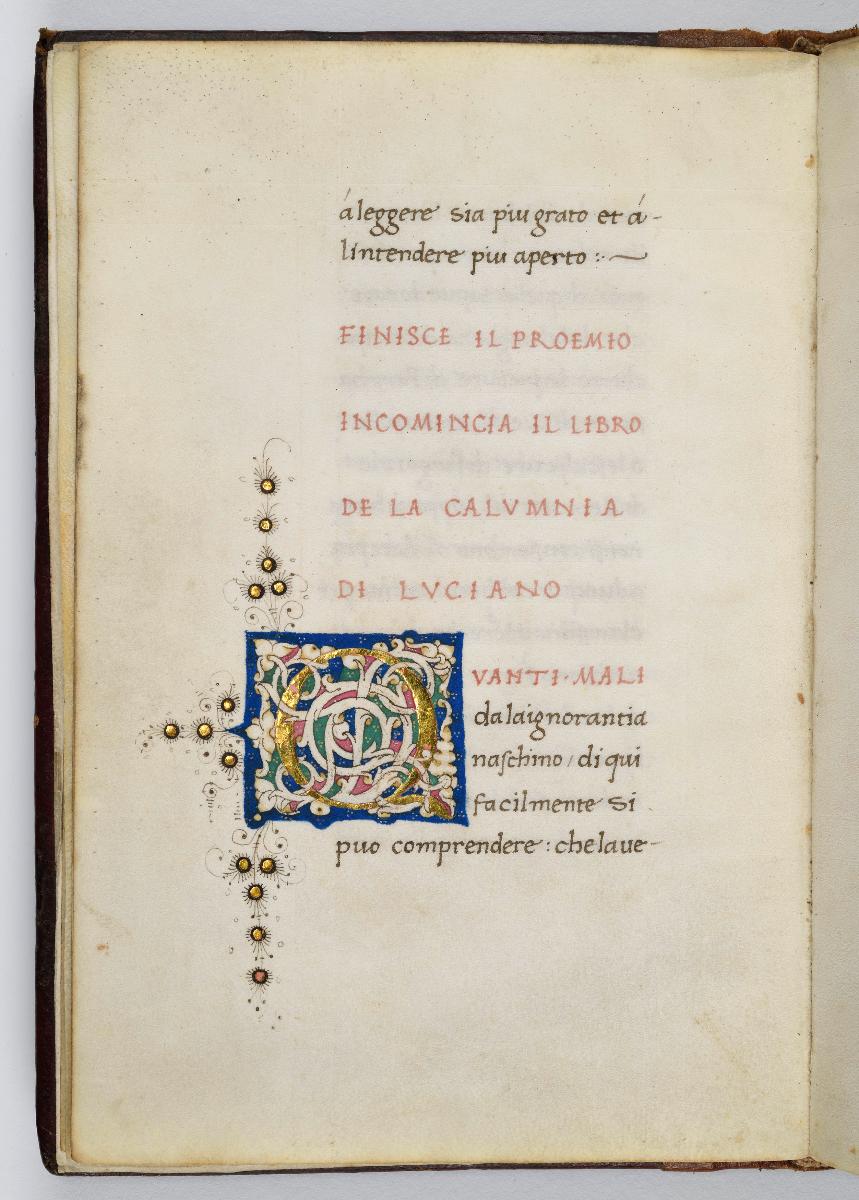 á leggere sia piu grato et á-
lintendere piu aperto :~
FINISCE IL PROEMIO
INCOMINCIA IL LIBRO
DE LA CALVMNIA
DI LVCIANO
QVANTI·MALI
da laignorantia
naschino / di qui
facilmente si
puo comprendere : che la ue-